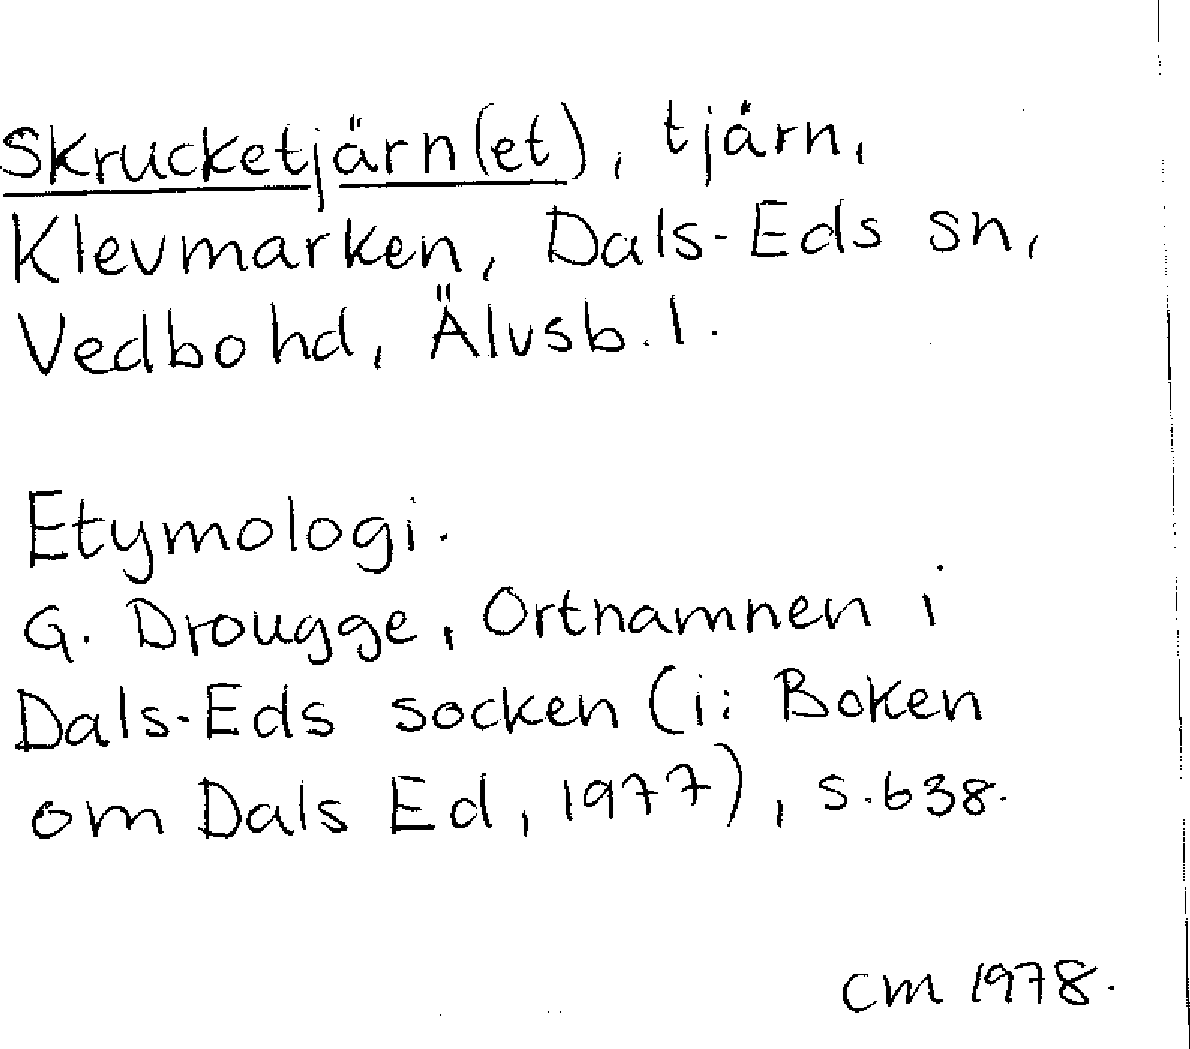 Skrucketjärn(et), tjärn,
Klevmarken, Dals-Eds sn,
Vedbo hd, Älvsb. l.
Etymologi.
G. Drougge, Ortnamnen i
Dals-Eds socken (i: Boken
om Dals Ed, 1977), s. 638.
CM 1978.